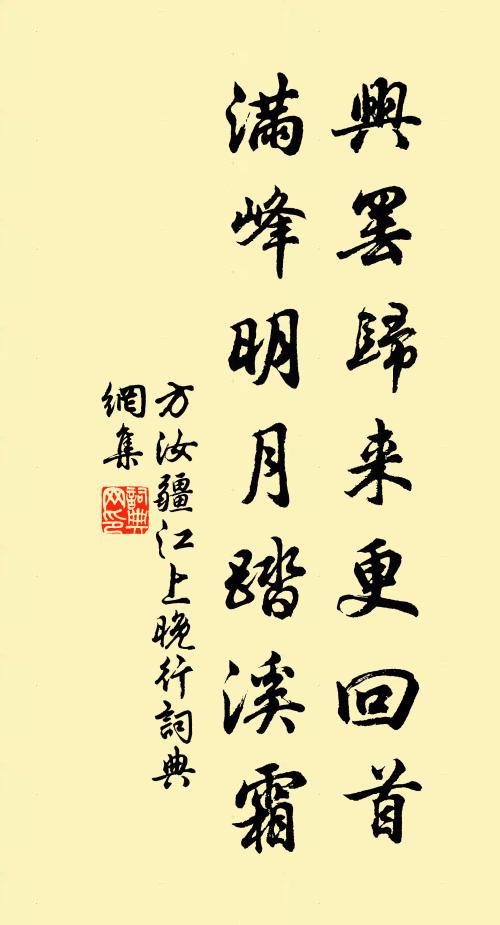 興罷歸来更回首
滿峰明月踏溪霜
方汝疆江上晚行詞典
網集
詞典
网印